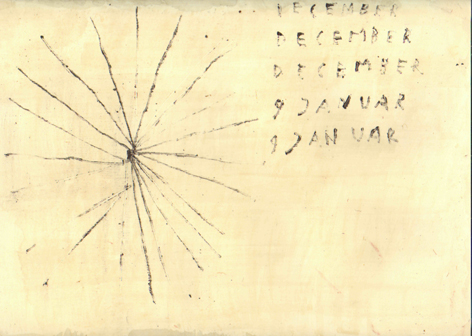 DECEMBER
DECEMBER
DECEMBER
9 JANUAR
9 JANUAR